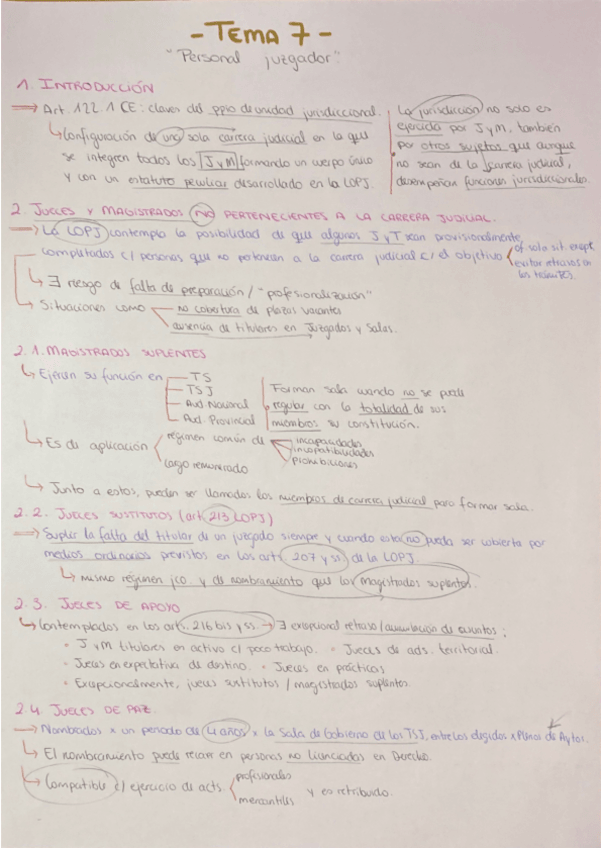 - TEMA 7 -
"Personal juzgador".
1. INTRODUCCIÓN
→ Art. 122.1 CE: claves del ppio de unidad jurisdiccional.
↳ Configuración de una sola carrera judicial en la que
se integren todos los JyM formando un cuerpo único
y con un estatuto peculiar desarrollado en la LOPJ.
La jurisdicción no solo es
ejercida por JyM, también
por otros sujetos que aunque
no sean de la carrera judicial,
desempeñan funciones jurisdiccionales.
2. JUECES Y MAGISTRADOS NO PERTENECIENTES A LA CARRERA JUDICIAL.
→ La LOPJ contempla la posibilidad de que algunos J y T sean provisionalmente
completados c/ personas que no pertenecen a la carrera judicial c/ el objetivo
of. solo sit. except.
evitar retrasos en
los
↳ ∃ riesgo de falta de preparación / "profesionalización"
↳ Situaciones como
no cobertura de plazas vacantes
ausencia de titulares en Juzgados y Salas.
2.1. MAGISTRADOS SUPLENTES
↳ Ejercen su función en
TS
TSJ
Aud. Nacional
Aud. Provincial
Forman sala cuando no se puede
regular con la totalidad de sus
miembros su constitución.
↳ Es de aplicación
régimen común de
incapacidades
incompatibilidades
prohibiciones
cargo remunerado
↳ Junto a estos, pueden ser llamados los miembros de carrera judicial para formar sala.
2.2. JUECES SUSTITUTOS (art 213 LOPJ)
→ Suplir la falta del titular de un juzgado siempre y cuando esta no pueda ser cubierta por
medios ordinarios previstos en los arts 207 y ss de la LOPJ.
↳ mismo régimen jco. y de nombramiento que los magistrados suplentes.
2.3. JUECES DE APOYO
↳ Contemplados en los art. 216 bis y ss. → ∃ excepcional retraso / acumulación de asuntos:
• J y M titulares en activo c/ poco trabajo. • Jueces de ads. territorial.
• Jueces en expectativa de destino. • Jueces en prácticas
• Excepcionalmente, jueces sustitutos / magistrados suplentes.
2.4 JUECES DE PAZ.
→ Nombrados x un periodo de 4 años x la Sala de Gobierno de los TSJ, entre los elegidos x Plenos de Aytos.
↳ El nombramiento puede recaer en personas no licenciadas en Derecho.
↳ Compatible c/ ejercicio de acts.
profesionales
mercantiles
y es retribuido.